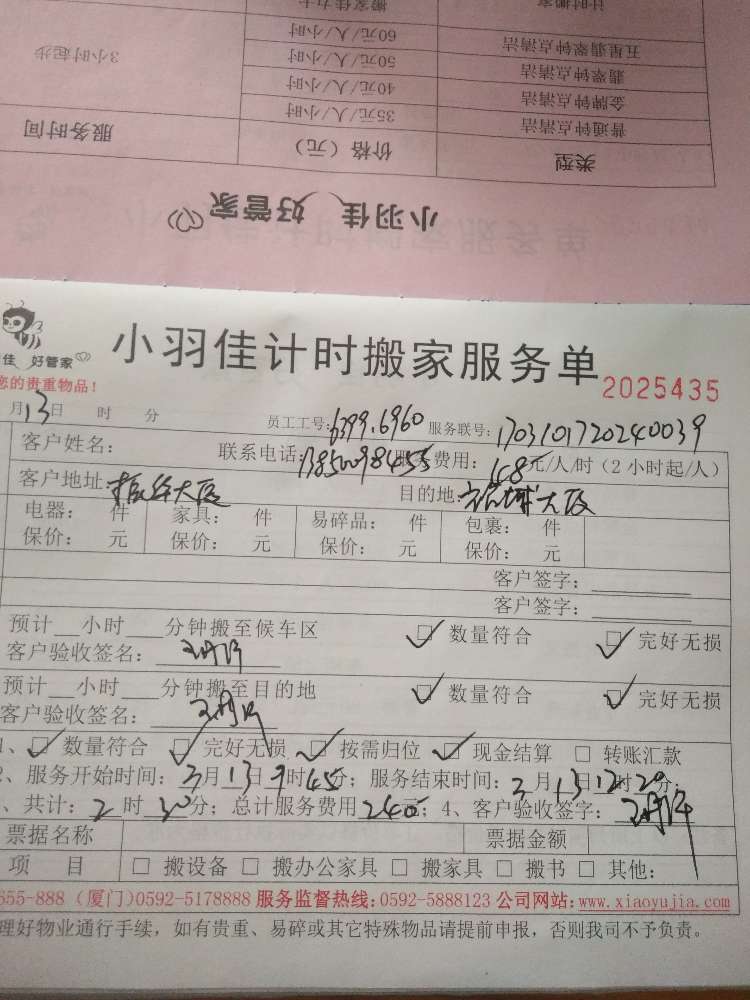 计时搬家 搬家佳力卡
五星翡翠钟点清洁 60元/人/小时
翡翠钟点清洁 50元/人/小时 3小时起步
金牌钟点清洁 40元/人/小时
普通钟点清洁 35元/人/小时
类型 价格（元） 服务时间
小羽佳 好管家
佳 好管家
小羽佳计时搬家服务单 2025435
您的贵重物品！
月13日 时 分 员工工号:6399.6960 服务联号:1703101720240039
客户姓名： 联系电话: 服务费用：168元/人/时（2小时起/人）
客户地址: 大厦 目的地: 大厦
电器： 件 家具： 件 易碎品： 件 包裹： 件
保价： 元 保价： 元 保价： 元 保价： 元
客户签字：
客户签字：
预计 小时 分钟搬至候车区 数量符合 完好无损
客户验收签名：
预计 小时 分钟搬至目的地 数量符合 完好无损
客户验收签名：
1、 数量符合 完好无损 按需归位 现金结算 转账汇款
2、服务开始时间：3月13日9时45分；服务结束时间：3月13日12时20分；
、共计：2时30分；总计服务费用240元；4、客户验收签字：
票据名称 票据金额
项 目 搬设备 搬办公家具 搬家具 搬书 其他：
855-888（厦门）0592-5178888 服务监督热线：0592-5888123 公司网站：www.xiaoyujia.com
理好物业通行手续，如有贵重、易碎或其它特殊物品请提前申报，否则我司不予负责。